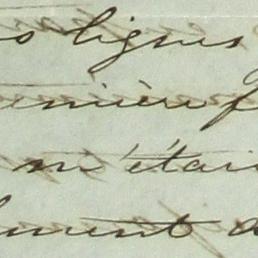 s lignes
emière f
m'étai
lement d